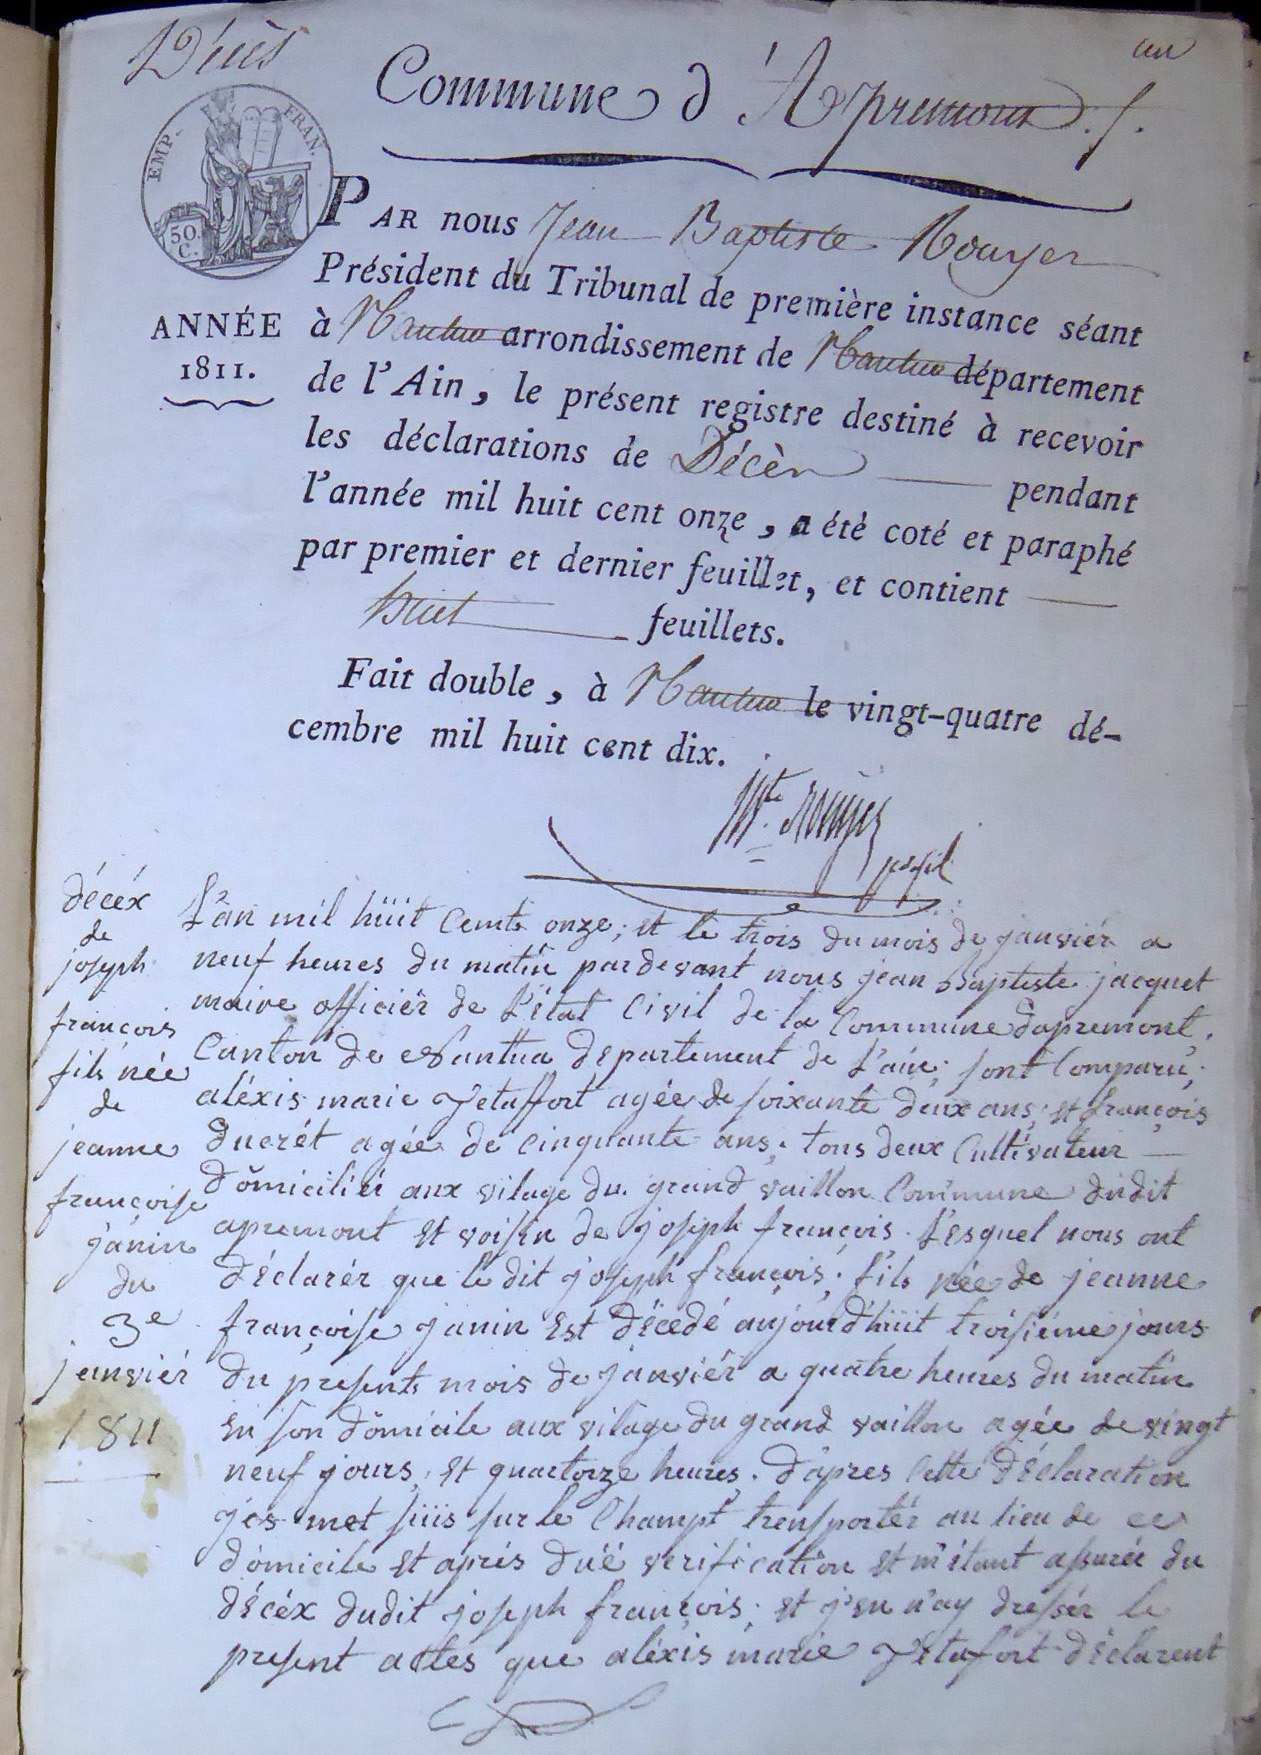 Décès
un
Commune d'Apremont.
EMP. FRAN.
50. C.
ANNÉE
1811.
PAR nous Jean Baptiste Rouyer
Président du Tribunal de première instance séant
à Nantua arrondissement de Nantua département
de l'Ain, le présent registre destiné à recevoir
les déclarations de Décès pendant
l'année mil huit cent onze, a été coté et paraphé
par premier et dernier feuillet, et contient
huit feuillets.
Fait double, à Nantua le vingt-quatre dé-
cembre mil huit cent dix.
Rouyer
décéx
de
joseph
françois
fils née
de
jeanne
françoise
janin
du
3e
janviér
1811
L'an mil hüit Cents onze; et le trois du mois de janviér a
neuf heures du matin pardevant nous jean Baptiste jacquet
maire officiér de l'état Civil de la Commune dapremont,
Canton de Nantua departement de l'ain; sont Comparu;
aléxis marie Vetaffort agée de soixante deux ans; et françois
ducrét agée de cinquante ans; tous deux Cultivateur
domiciliér aux vilage du grand vaillon Commune dudit
apremont et voisin de joseph françois. Lesquel nous ont
déclarér que le dit joseph françois; fils née de jeanne
françoise janin est décedé aujourd'hüit troisiéme jours
du presents mois de janviér a quatre heures du matin
en son domicile aux vilage du grand vaillon agée de vingt
neuf jours, et quartorze heures. d'apres Cette déclaration
je met süis sur le Champt transportér au lieu de ce
domicile et aprés dué verification et m'étant assurée du
décéx dudit joseph françois; et j'en n'ay dressér le
present actes que aléxis marie Vetafort déclarent